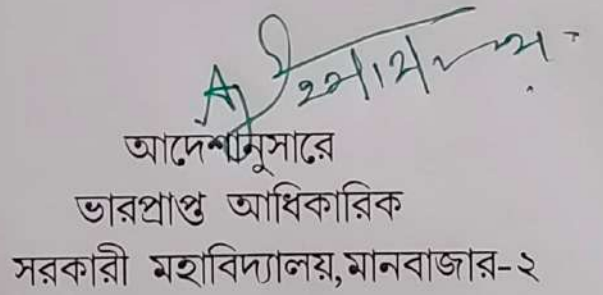 আদেশানুসারে
ভারপ্রাপ্ত আধিকারিক
সরকারী মহাবিদ্যালয়,মানবাজার-২